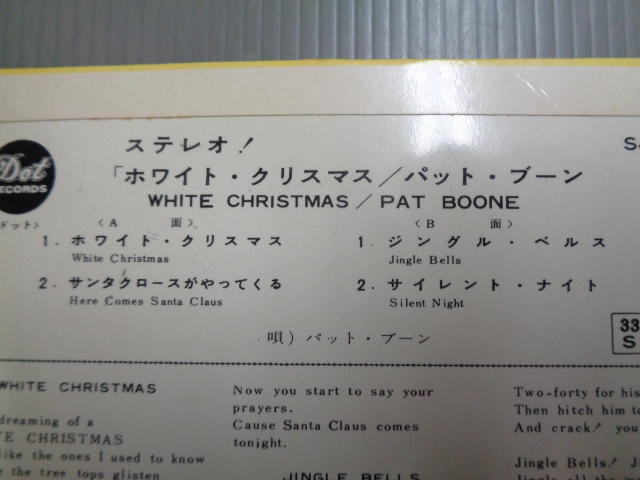 ステレオ!
Dot
RECORDS
ドット〉
「ホワイト・クリスマス/パット・ブーン
WHITE CHRISTMAS / PAT BOONE
〈A 面〉
1. ホワイト・クリスマス
White Christmas
2. サンタクロースがやってくる
Here Comes Santa Claus
〈B 面〉
1. ジングル・ベルス
Jingle Bells
2. サイレント・ナイト
Silent Night
唄) パット・ブーン
33
S
WHITE CHRISTMAS
dreaming of a
TE CHRISTMAS
like the ones I used to know
e the tree tops glisten
Now you start to say your
prayers.
Cause Santa Claus comes
tonight.
JINGLE BELLS
Two-forty for his
Then hitch him to
And crack! you
Jingle Bells! J
Jingle all the w